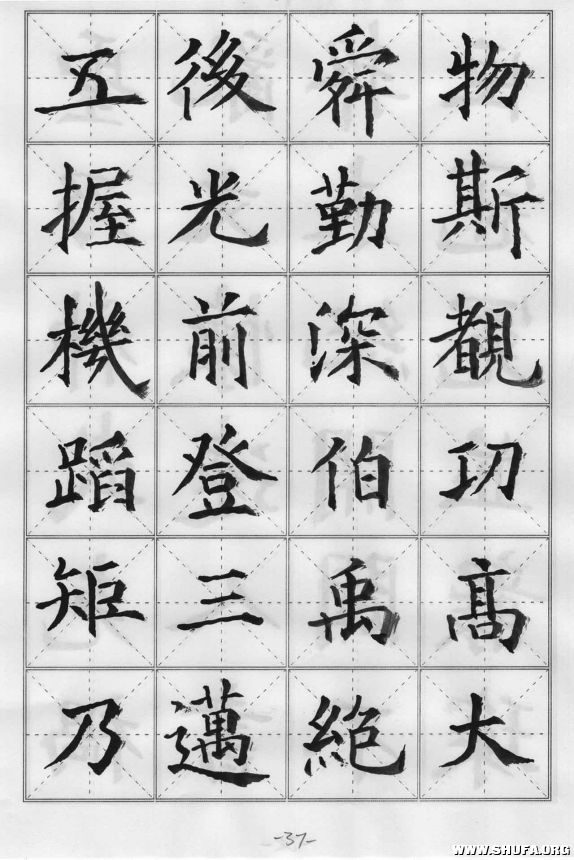 物斯覩功高大
舜勤深伯禹絶
後光前登三邁
五握機蹈矩乃
-37-
WWW.SHUFA.ORG